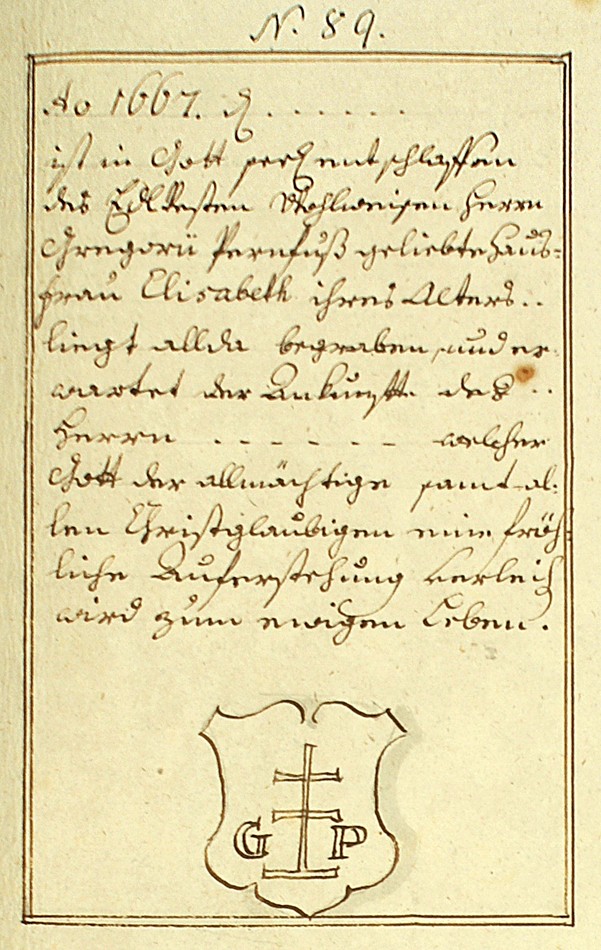 N. 89.
Ao 1667. d. . . . . . .
ist in Gott seel. entschlaffen
des Edl Vesten Wohlweisen Herrn
Gregorii Pernfuß geliebte Haus-
frau Elisabeth ihres Alters . .
liegt allda begraben, und er-
wartet der Ankunfft des . .
Herrn . . . . . . welcher
Gott der allmächtige samt al-
len Christglaubigen eine fröh-
liche Auferstehung verleich
wird zum ewigen Leben.
G P